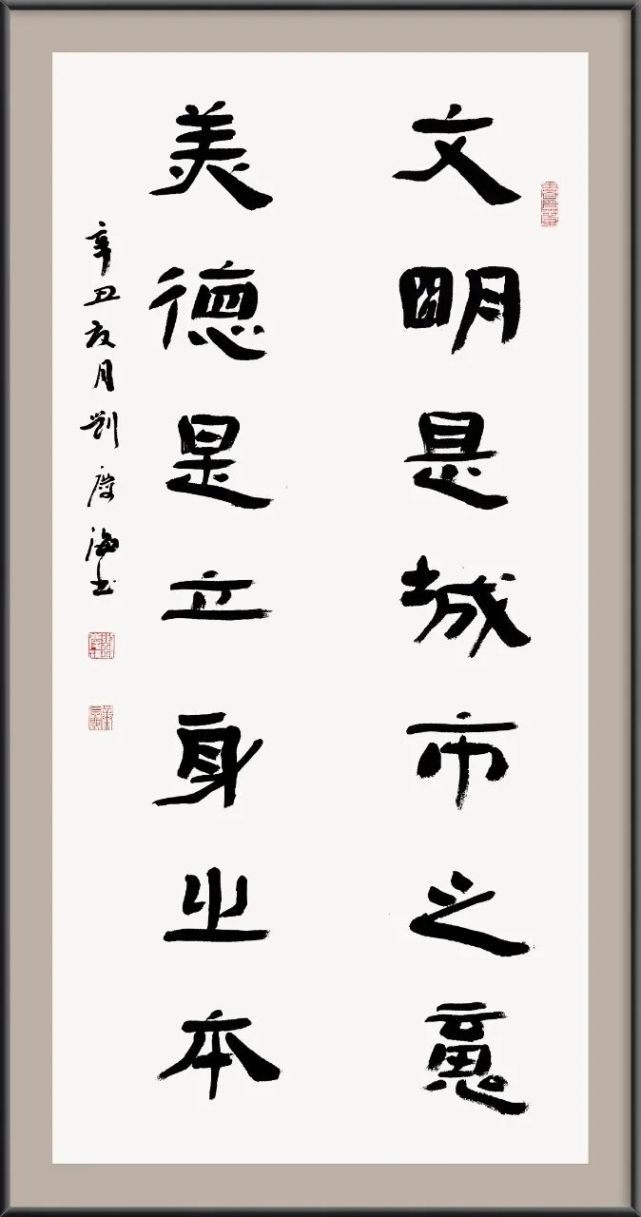 文明是城市之魂
美德是立身之本
辛丑夏月劉慶海书